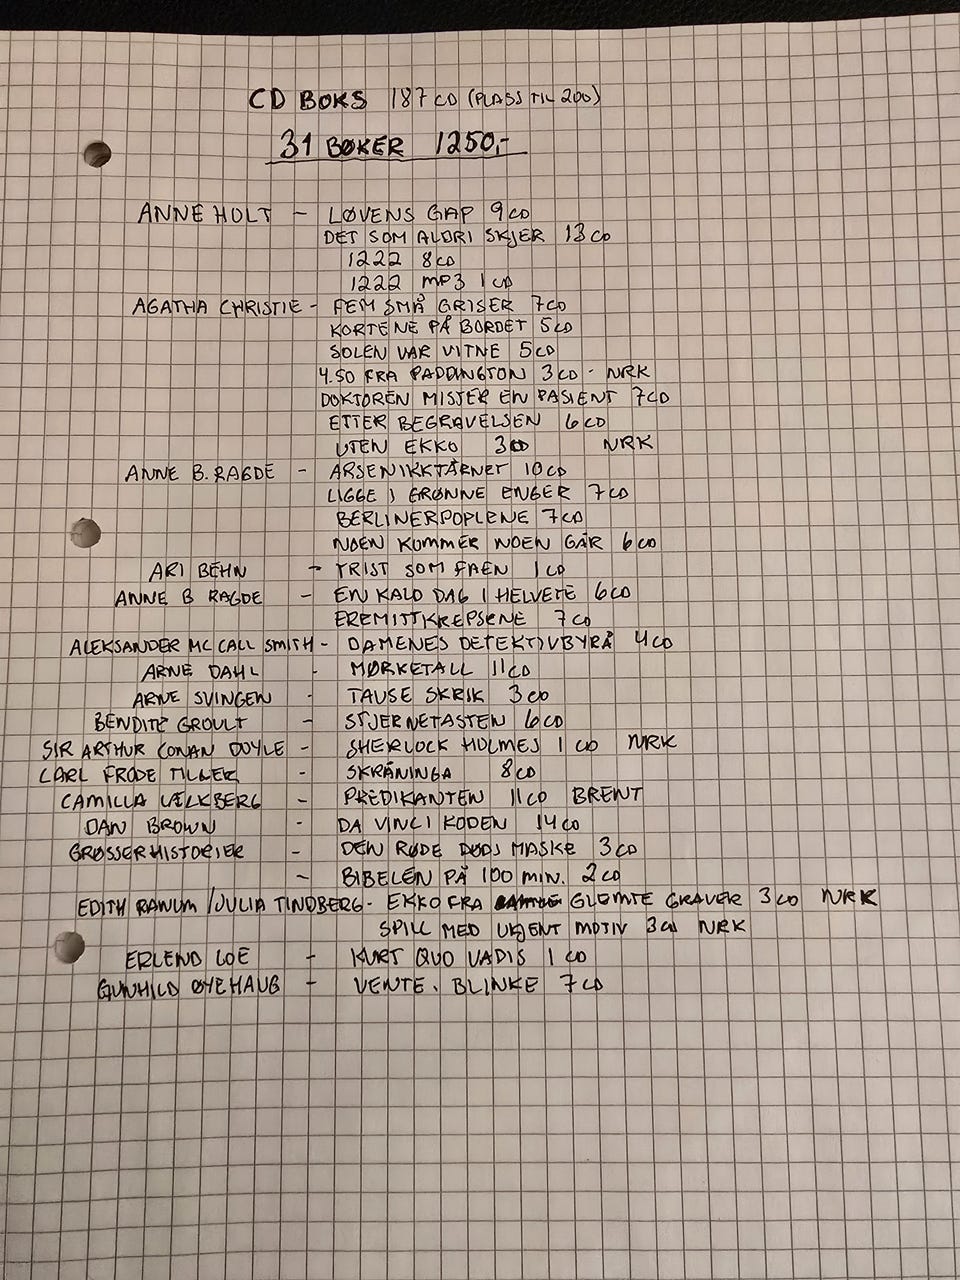 CD BOKS 187 CD (PLASS TIL 200)
31 BØKER 1250,-
ANNE HOLT - LØVENS GAP 9 CD
DET SOM ALDRI SKJER 13 CD
1222 8 CD
1222 MP3 1 CD
AGATHA CHRISTIE - FEM SMÅ GRISER 7 CD
KORTENE PÅ BORDET 5 CD
SOLEN VAR VITNE 5 CD
4.50 FRA PADDINGTON 3 CD - NRK
DOKTOREN MISTER EN PASIENT 7 CD
ETTER BEGRAVELSEN 6 CD
UTEN EKKO 3 CD NRK
ANNE B. RAGDE - ARSENIKKTÅRNET 10 CD
LIGGE I GRØNNE ENGER 7 CD
BERLINERPOPLENE 7 CD
NOEN KOMMER NOEN GÅR 6 CD
ARI BEHN - TRIST SOM FAEN 1 CD
ANNE B RAGDE - EN KALD DAG I HELVETE 6 CD
EREMITTKREPSENE 7 CD
ALEKSANDER MC CALL SMITH - DAMENES DETEKTIVBYRÅ 4 CD
ARNE DAHL - MØRKETALL 11 CD
ARNE SVINGEN - TAUSE SKRIK 3 CD
BENDITE GROULT - STJERNETASTEN 6 CD
SIR ARTHUR CONAN DOYLE - SHERLOCK HOLMES 1 CD NRK
CARL FRODE TILLER - SKRÅNINGA 8 CD
CAMILLA LÆKBERG - PREDIKANTEN 11 CD BRENT
DAN BROWN - DA VINCI KODEN 14 CD
GRØSSERHISTORIER - DEN RØDE DØDS MASKE 3 CD
- BIBELEN PÅ 100 MIN. 2 CD
EDITH RANUM / JULIA TINDBERG - EKKO FRA GLEMTE GRAVER 3 CD NRK
SPILL MED UKJENT MOTIV 3 CD NRK
ERLEND LOE - KURT QUO VADIS 1 CD
GUNHILD ØYEHAUG - VENTE, BLINKE 7 CD